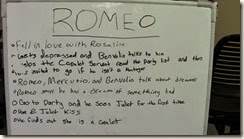 ROMEO
• Fell in love with Rosaline
• Gets depressed and Benvolio talks to him
• helps the Capulet Servant read the Party list and then
his invited to go if he isn't a Montague
• Romeo, Mercutio, and Benvolio talk about dreams
• Romeo says he has a dream of something bad
• Go to Party and he sees Juliet for the first time
• He & Juliet Kiss
• He finds out she is a Capulet